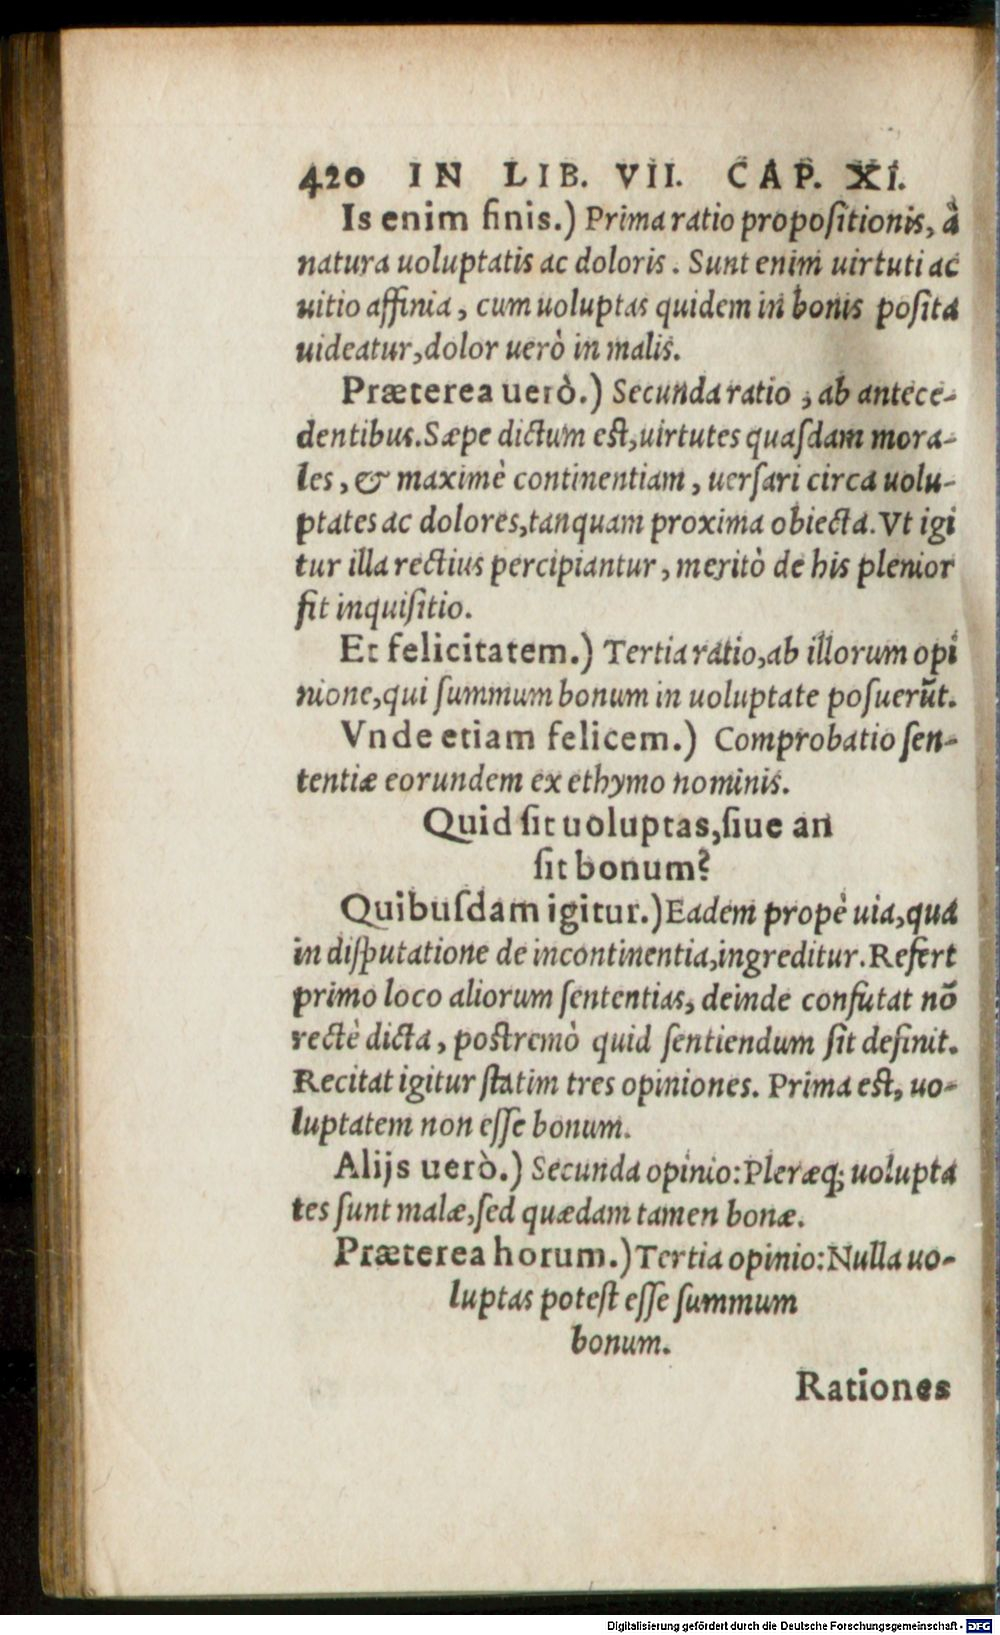 420 IN LIB. VII. CAP. XI.
Is enim finis.) Prima ratio propoſitionis, à
natura uoluptatis ac doloris. Sunt enim uirtuti ac
uitio affinia, cum uoluptas quidem in bonis poſita
uideatur, dolor uerò in malis.
Præterea uerò.) Secunda ratio, ab antece-
dentibus. Sæpe dictum est, uirtutes quaſdam mora-
les, & maximè continentiam, uerſari circa uolu-
ptates ac dolores, tanquam proxima obiecta. Vt igi
tur illa rectius percipiantur, meritò de his plenior
fit inquiſitio.
Et felicitatem.) Tertia ratio, ab illorum opi
nione, qui ſummum bonum in uoluptate poſuerūt.
Vnde etiam felicem.) Comprobatio ſen-
tentiæ eorundem ex ethymo nominis.
Quid ſit uoluptas, ſiue an
ſit bonum?
Quibuſdam igitur.) Eadem propè uia, qua
in diſputatione de incontinentia, ingreditur. Refert
primo loco aliorum ſententias, deinde confutat nō
rectè dicta, postremò quid ſentiendum ſit definit.
Recitat igitur ſtatim tres opiniones. Prima est, uo-
luptatem non eſſe bonum.
Alijs uerò.) Secunda opinio: Pleræq; uolupta
tes ſunt malæ, ſed quædam tamen bonæ.
Præterea horum.) Tertia opinio: Nulla uo-
luptas poteſt eſſe ſummum
bonum.
Rationes
Digitalisierung gefördert durch die Deutsche Forschungsgemeinschaft - DFG